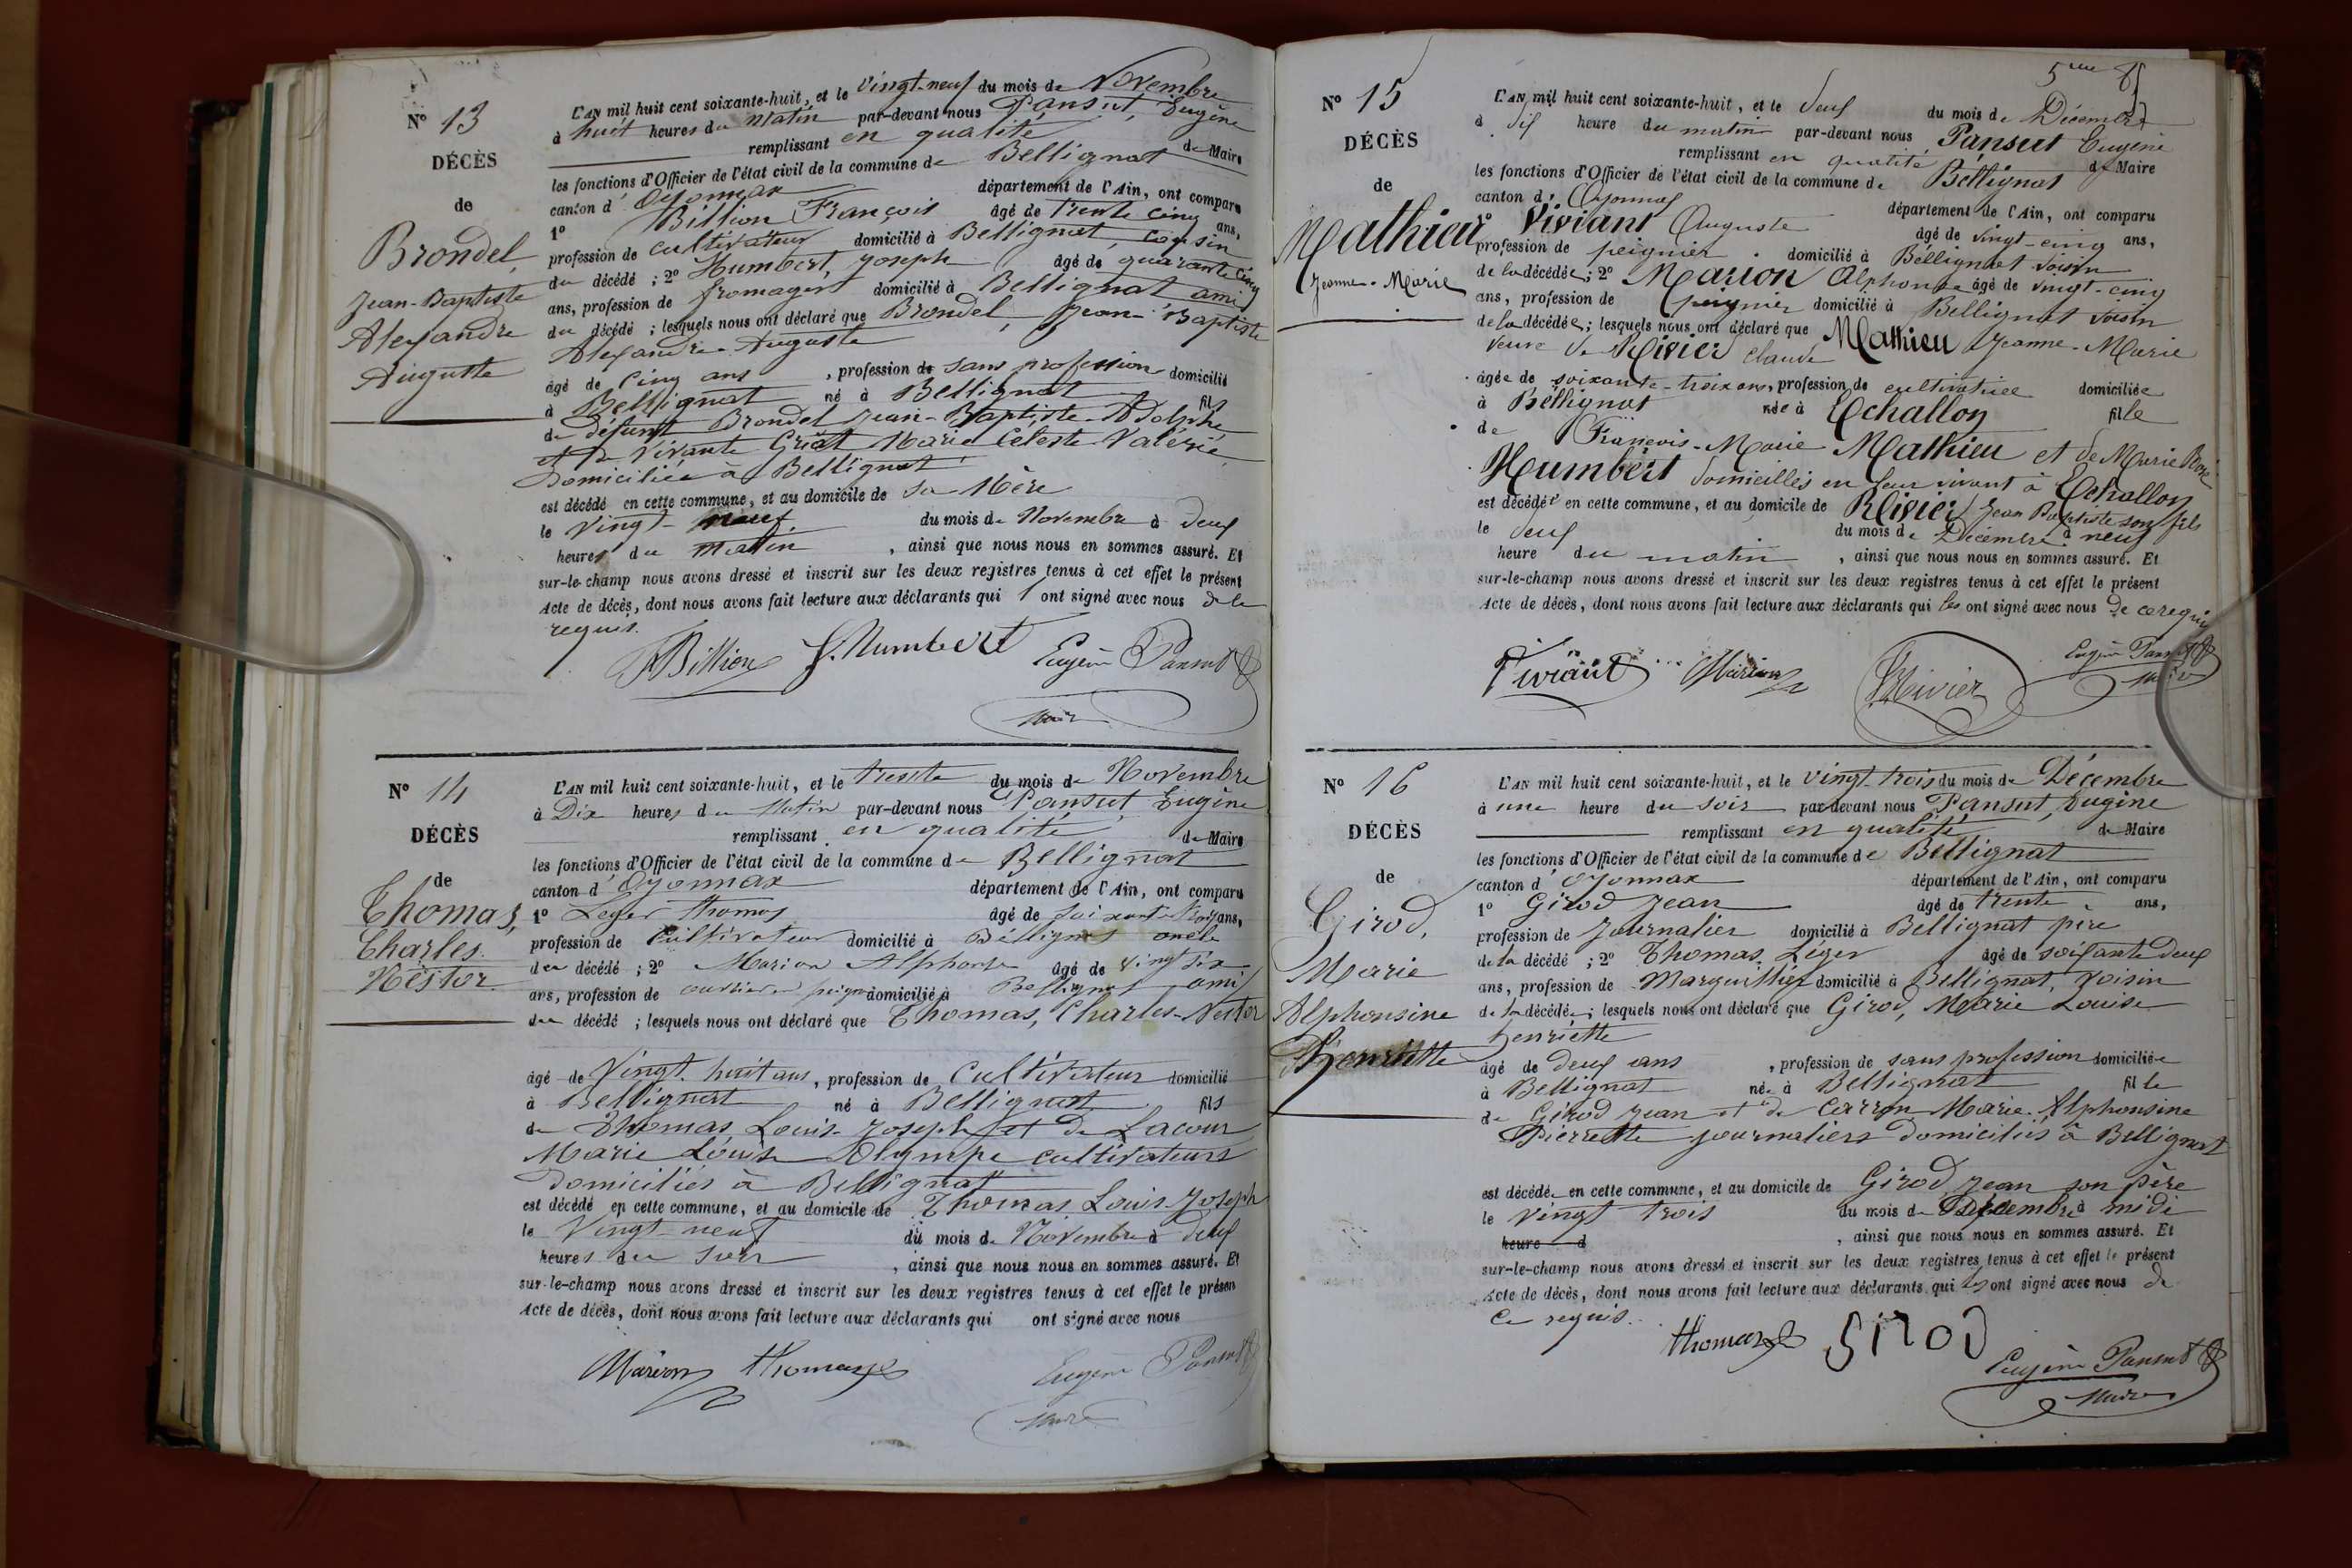 N° 13
DÉCÈS
de
Brondel,
Jean-Baptiste
Alexandre
Auguste
L'AN mil huit cent soixante-huit, et le vingt-neuf du mois de Novembre
à huit heures du Matin par-devant nous Pansut, Eugène
remplissant en qualité de Maire
les fonctions d'Officier de l'état civil de la commune de Bellignat
canton d' Oyonnax département de l'Ain, ont comparu
1° Billion François âgé de trente cinq ans,
profession de cultivateur domicilié à Bellignat, cousin
du décédé ; 2° Humbert, Joseph âgé de quarante cinq
ans, profession de fromager domicilié à Bellignat ami
du décédé ; lesquels nous ont déclaré que Brondel, Jean-Baptiste
Alexandre Auguste
âgé de Cinq ans, profession de sans profession domicilié
à Bellignat né à Bellignat fils
de défunt Brondel Jean-Baptiste-Adolphe
et de vivante Gréat Marie Celeste Valérie,
Domiciliée à Bellignat
est décédé en cette commune, et au domicile de sa Mère
le vingt-neuf du mois de Novembre à deux
heures du matin, ainsi que nous nous en sommes assuré. Et
sur-le-champ nous avons dressé et inscrit sur les deux registres tenus à cet effet le présent
Acte de décès, dont nous avons fait lecture aux déclarants qui ont signé avec nous de le
requis.
Billion J. Humbert Eugène Pansut
Maire
N° 14
DÉCÈS
de
Thomas,
Charles
Nestor
L'AN mil huit cent soixante-huit, et le trente du mois de Novembre
à Dix heures du Matin par-devant nous Pansut, Eugène
remplissant en qualité de Maire
les fonctions d'Officier de l'état civil de la commune de Bellignat
canton d' Oyonnax département de l'Ain, ont comparu
1° Leger Thomas âgé de soixante trois ans,
profession de Cultivateur domicilié à Bellignat oncle
du décédé ; 2° Marion Alphonse âgé de vingt six
ans, profession de ouvrier en peigne domicilié à Bellignat ami
du décédé ; lesquels nous ont déclaré que Thomas, Charles-Nestor
âgé de Vingt-huit ans, profession de Cultivateur domicilié
à Bellignat né à Bellignat fils
de Thomas Louis-Joseph et de Lacour
Marie Louise Olympe cultivateurs
domiciliés à Bellignat
est décédé en cette commune, et au domicile de Thomas Louis-Joseph
le Vingt-neuf du mois de Novembre à deux
heures du soir, ainsi que nous nous en sommes assuré. Et
sur-le-champ nous avons dressé et inscrit sur les deux registres tenus à cet effet le présen
Acte de décès, dont nous avons fait lecture aux déclarants qui ont signé avec nous
Marion Thomas Eugène Pansut
Maire
5me
N° 15
DÉCÈS
de
Mathieu
Jeanne-Marie
L'AN mil huit cent soixante-huit, et le deux du mois de Décembre
à dix heure du matin par-devant nous Pansut Eugène
remplissant en qualité de Maire
les fonctions d'Officier de l'état civil de la commune de Bellignat
canton d' Oyonnax département de l'Ain, ont comparu
1° Viviant Auguste âgé de vingt-cinq ans,
profession de peignier domicilié à Bellignat voisin
de la décédée ; 2° Marion Alphonse âgé de vingt-cinq
ans, profession de peignier domicilié à Bellignat voisin
de la décédée ; lesquels nous ont déclaré que Mathieu Jeanne-Marie
veuve de Rivier Claude
âgée de soixante-treize ans, profession de cultivatrice domiciliée
à Bellignat née à Echallon fille
de François-Marie Mathieu et de Marie Rose
Humbert domicilies en leur vivant à Echallon
est décédée en cette commune, et au domicile de Rivier Jean Baptiste son fils
le deux du mois de Décembre à neuf
heure du matin, ainsi que nous nous en sommes assuré. Et
sur-le-champ nous avons dressé et inscrit sur les deux registres tenus à cet effet le présent
Acte de décès, dont nous avons fait lecture aux déclarants qui les ont signé avec nous de ce requis
Viviant Marion Rivier Eugène Pansut
Maire
N° 16
DÉCÈS
de
Girod,
Marie
Alphonsine
Henriette
L'AN mil huit cent soixante-huit, et le vingt-trois du mois de Décembre
à une heure du soir par-devant nous Pansut, Eugène
remplissant en qualité de Maire
les fonctions d'Officier de l'état civil de la commune de Bellignat
canton d' Oyonnax département de l'Ain, ont comparu
1° Girod Jean âgé de trente ans,
profession de Journalier domicilié à Bellignat père
de la décédé ; 2° Thomas, Léger âgé de soixante deux
ans, profession de Marguillier domicilié à Bellignat, voisin
de la décédée ; lesquels nous ont déclaré que Girod, Marie Louise
henriette
âgé de deux ans, profession de sans profession domiciliée
à Bellignat née à Bellignat fille
de Girod Jean et de Carron Marie Alphonsine
Pierrette journaliers domiciliés à Bellignat
est décédé en cette commune, et au domicile de Girod Jean son père
le vingt trois du mois de Décembre à midi
heure d, ainsi que nous nous en sommes assuré. Et
sur-le-champ nous avons dressé et inscrit sur les deux registres tenus à cet effet le présent
Acte de décès, dont nous avons fait lecture aux déclarants qui les ont signé avec nous de
Ce requis.
Thomas Girod Eugène Pansut
Maire